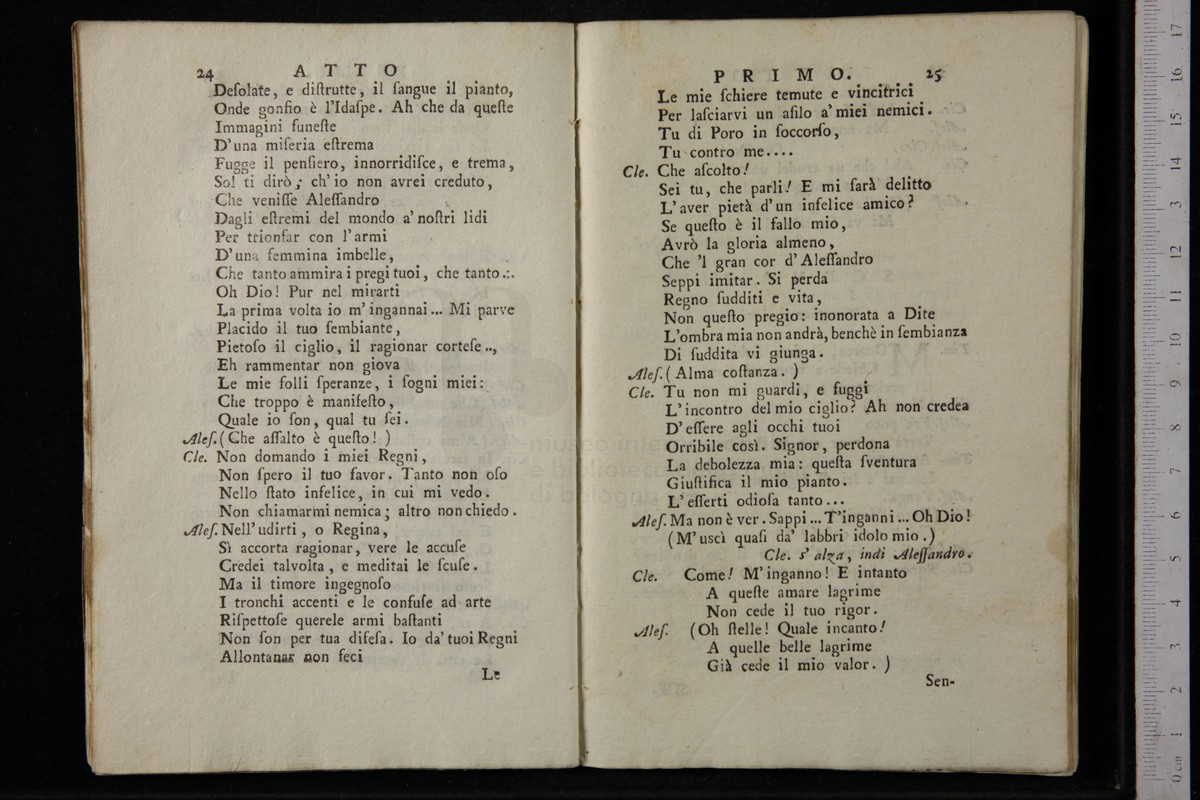 24 ATTO
Deſolate, e diſtrutte, il ſangue il pianto,
Onde gonfio è l'Idaſpe. Ah che da queſte
Immagini funeſte
D'una miſeria eſtrema
Fugge il penſiero, innorridiſce, e trema,
Sol ti dirò; ch'io non avrei creduto,
Che veniſſe Aleſſandro
Dagli eſtremi del mondo a'noſtri lidi
Per trionfar con l'armi
D'una femmina imbelle,
Che tanto ammira i pregi tuoi, che tanto.:.
Oh Dio! Pur nel mirarti
La prima volta io m'ingannai... Mi parve
Placido il tuo ſembiante,
Pietoſo il ciglio, il ragionar corteſe..,
Eh rammentar non giova
Le mie folli ſperanze, i ſogni miei:
Che troppo è manifeſto,
Quale io ſon, qual tu ſei.
Aleſ. (Che aſſalto è queſto! )
Cle. Non domando i miei Regni,
Non ſpero il tuo favor. Tanto non oſo
Nello ſtato infelice, in cui mi vedo.
Non chiamarmi nemica; altro non chiedo.
Aleſ. Nell'udirti, o Regina,
Sì accorta ragionar, vere le accuſe
Credei talvolta, e meditai le ſcuſe.
Ma il timore ingegnoſo
I tronchi accenti e le confuſe ad arte
Riſpettoſe querele armi baſtanti
Non ſon per tua difeſa. Io da'tuoi Regni
Allontanar non feci
Le
PRIMO. 25
Le mie ſchiere temute e vincitrici
Per laſciarvi un aſilo a'miei nemici.
Tu di Poro in ſoccorſo,
Tu contro me....
Cle. Che aſcolto!
Sei tu, che parli! E mi ſarà delitto
L'aver pietà d'un infelice amico?
Se queſto è il fallo mio,
Avrò la gloria almeno,
Che 'l gran cor d'Aleſſandro
Seppi imitar. Si perda
Regno ſudditi e vita,
Non queſto pregio: inonorata a Dite
L'ombra mia non andrà, benchè in ſembianza
Di ſuddita vi giunga.
Aleſ. (Alma coſtanza. )
Cle. Tu non mi guardi, e fuggi
L'incontro del mio ciglio? Ah non credea
D'eſſere agli occhi tuoi
Orribile così. Signor, perdona
La debolezza mia: queſta ſventura
Giuſtifica il mio pianto.
L'eſſerti odioſa tanto...
Aleſ. Ma non è ver. Sappi... T'inganni... Oh Dio!
(M'uscì quaſi da' labbri idolo mio.)
Cle. s'alza, indi Aleſſandro.
Cle. Come! M'inganno! E intanto
A queſte amare lagrime
Non cede il tuo rigor.
Aleſ. (Oh ſtelle! Quale incanto!
A quelle belle lagrime
Già cede il mio valor. )
Sen-